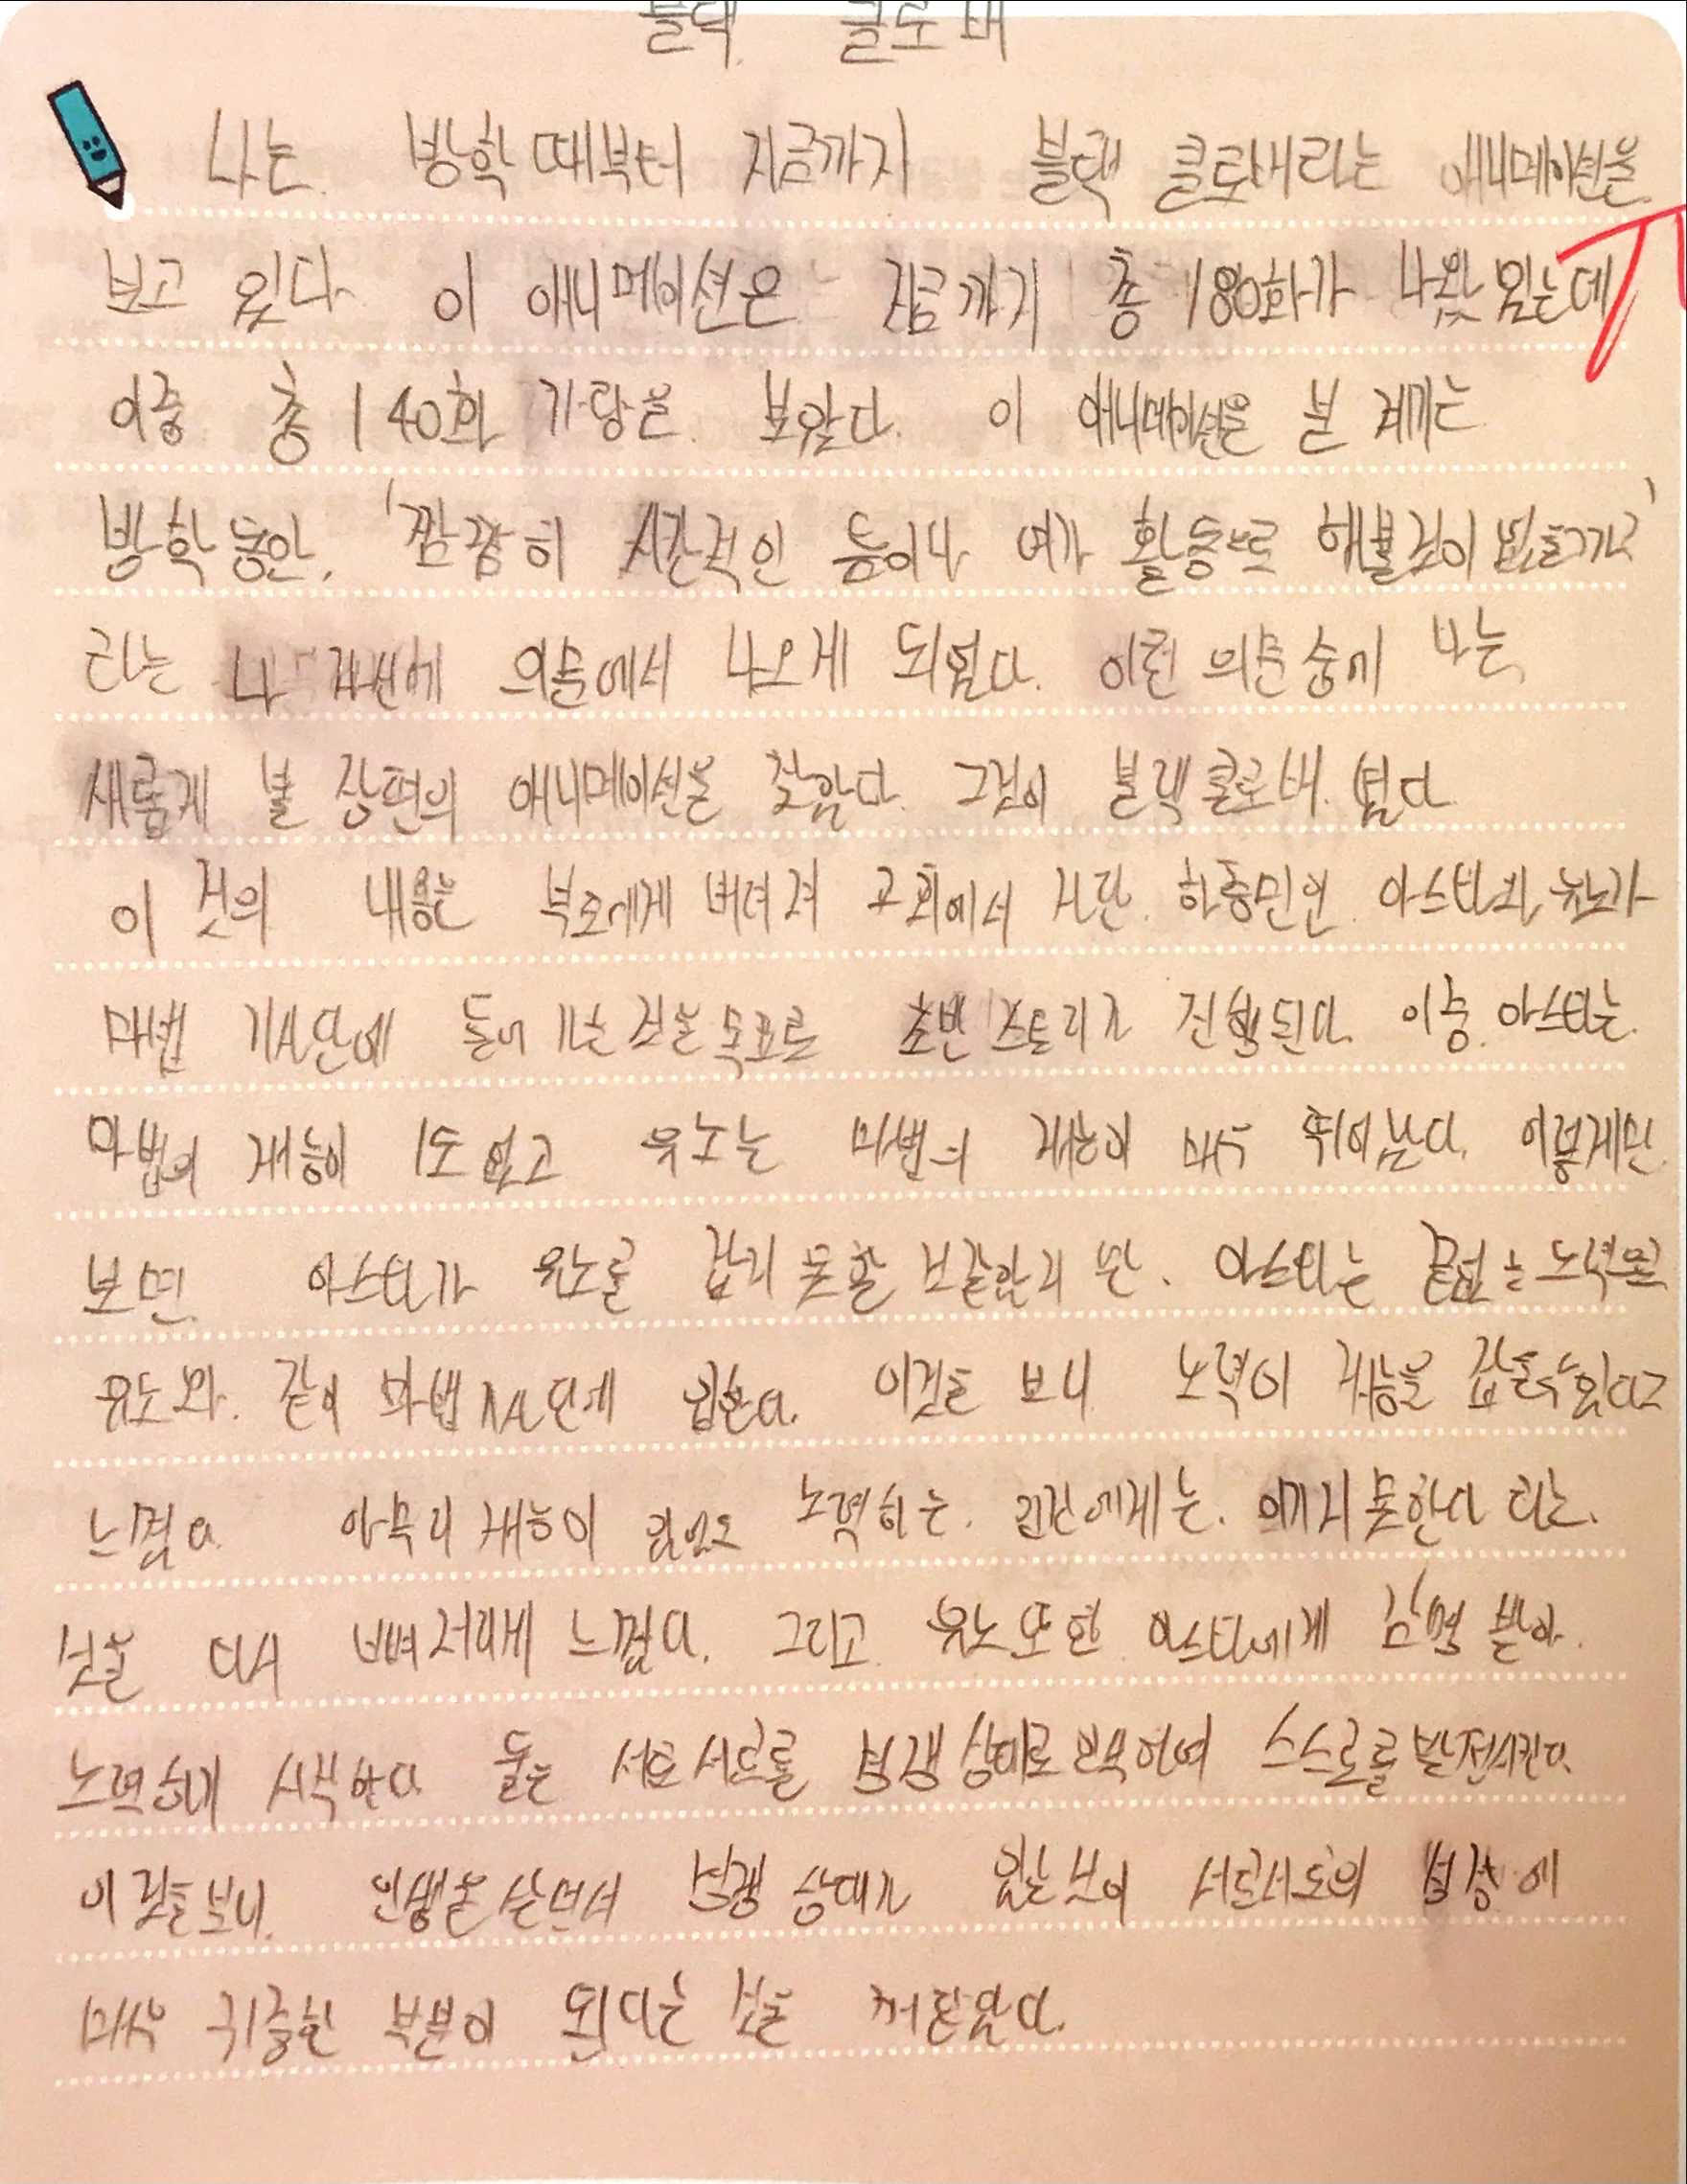 블랙 클로버
나는 방학 때부터 지금까지 블랙 클로버라는 애니메이션을
보고 있다 이 애니메이션은 지금까지 총 180화가 나왔 있는데
이중 총 140화 가량을 보았다. 이 애니메이션을 본 계기는
방학 동안, '짬짬히 시간적인 틈이나 여가 활동으로 해볼것이 없을까?'
라는 나 자신에 의문에서 나오게 되었다. 이런 의문 중에 나는
새롭게 볼 장편의 애니메이션을 찾았다. 그것이 블랙클로버 였다
이 것의 내용은 부모에게 버려져 교회에서 자란 하층민인 아스타와 유노가
마법 기사단에 들어가는 것을 목표로 초반 스토리가 진행된다. 이중 아스타는
마법의 재능이 1도 없고 유노는 마법의 재능이 매우 뛰어났다. 이렇게만
보면 아스타가 유노를 잡지 못할 것같았지만. 아스타는 끝없는 노력으로
유노와 같이 마법기사단에 입한다. 이것을 보니 노력이 재능을 잡을수있다고
느꼈다 아무리 재능이 있어도 노력하는 인간에게는 이기지 못한다 라는
것을 다시 뼈저리게 느꼈다. 그리고 유노 또한 아스타에게 감명 받아
노력하게 시작한다 둘은 서로 서로를 경쟁상대로 인식하여 스스로를 발전시킨다.
이것을보니 인생을 살면서 경쟁 상대가 있는것이 서로서로의 성장에
매우 귀중한 부분이 된다는 것을 깨달았다.